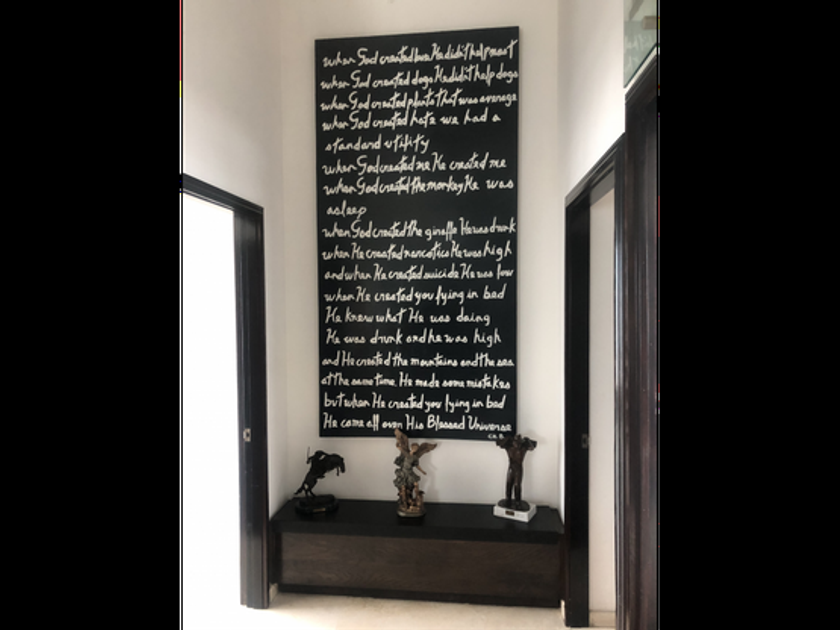 when God created love He didn't help most
when God created dogs He didn't help dogs
when God created plants that was average
when God created hate we had a
standard utility
when God created me He created me
when God created the monkey He was
asleep
when God created the giraffe He was drunk
when He created narcotics He was high
and when He created suicide He was low
when He created you lying in bed
He knew what He was doing
He was drunk and he was high
and He created the mountains and the sea
at the same time. He made some mistakes
but when He created you lying in bed
He came all over His Blessed Universe